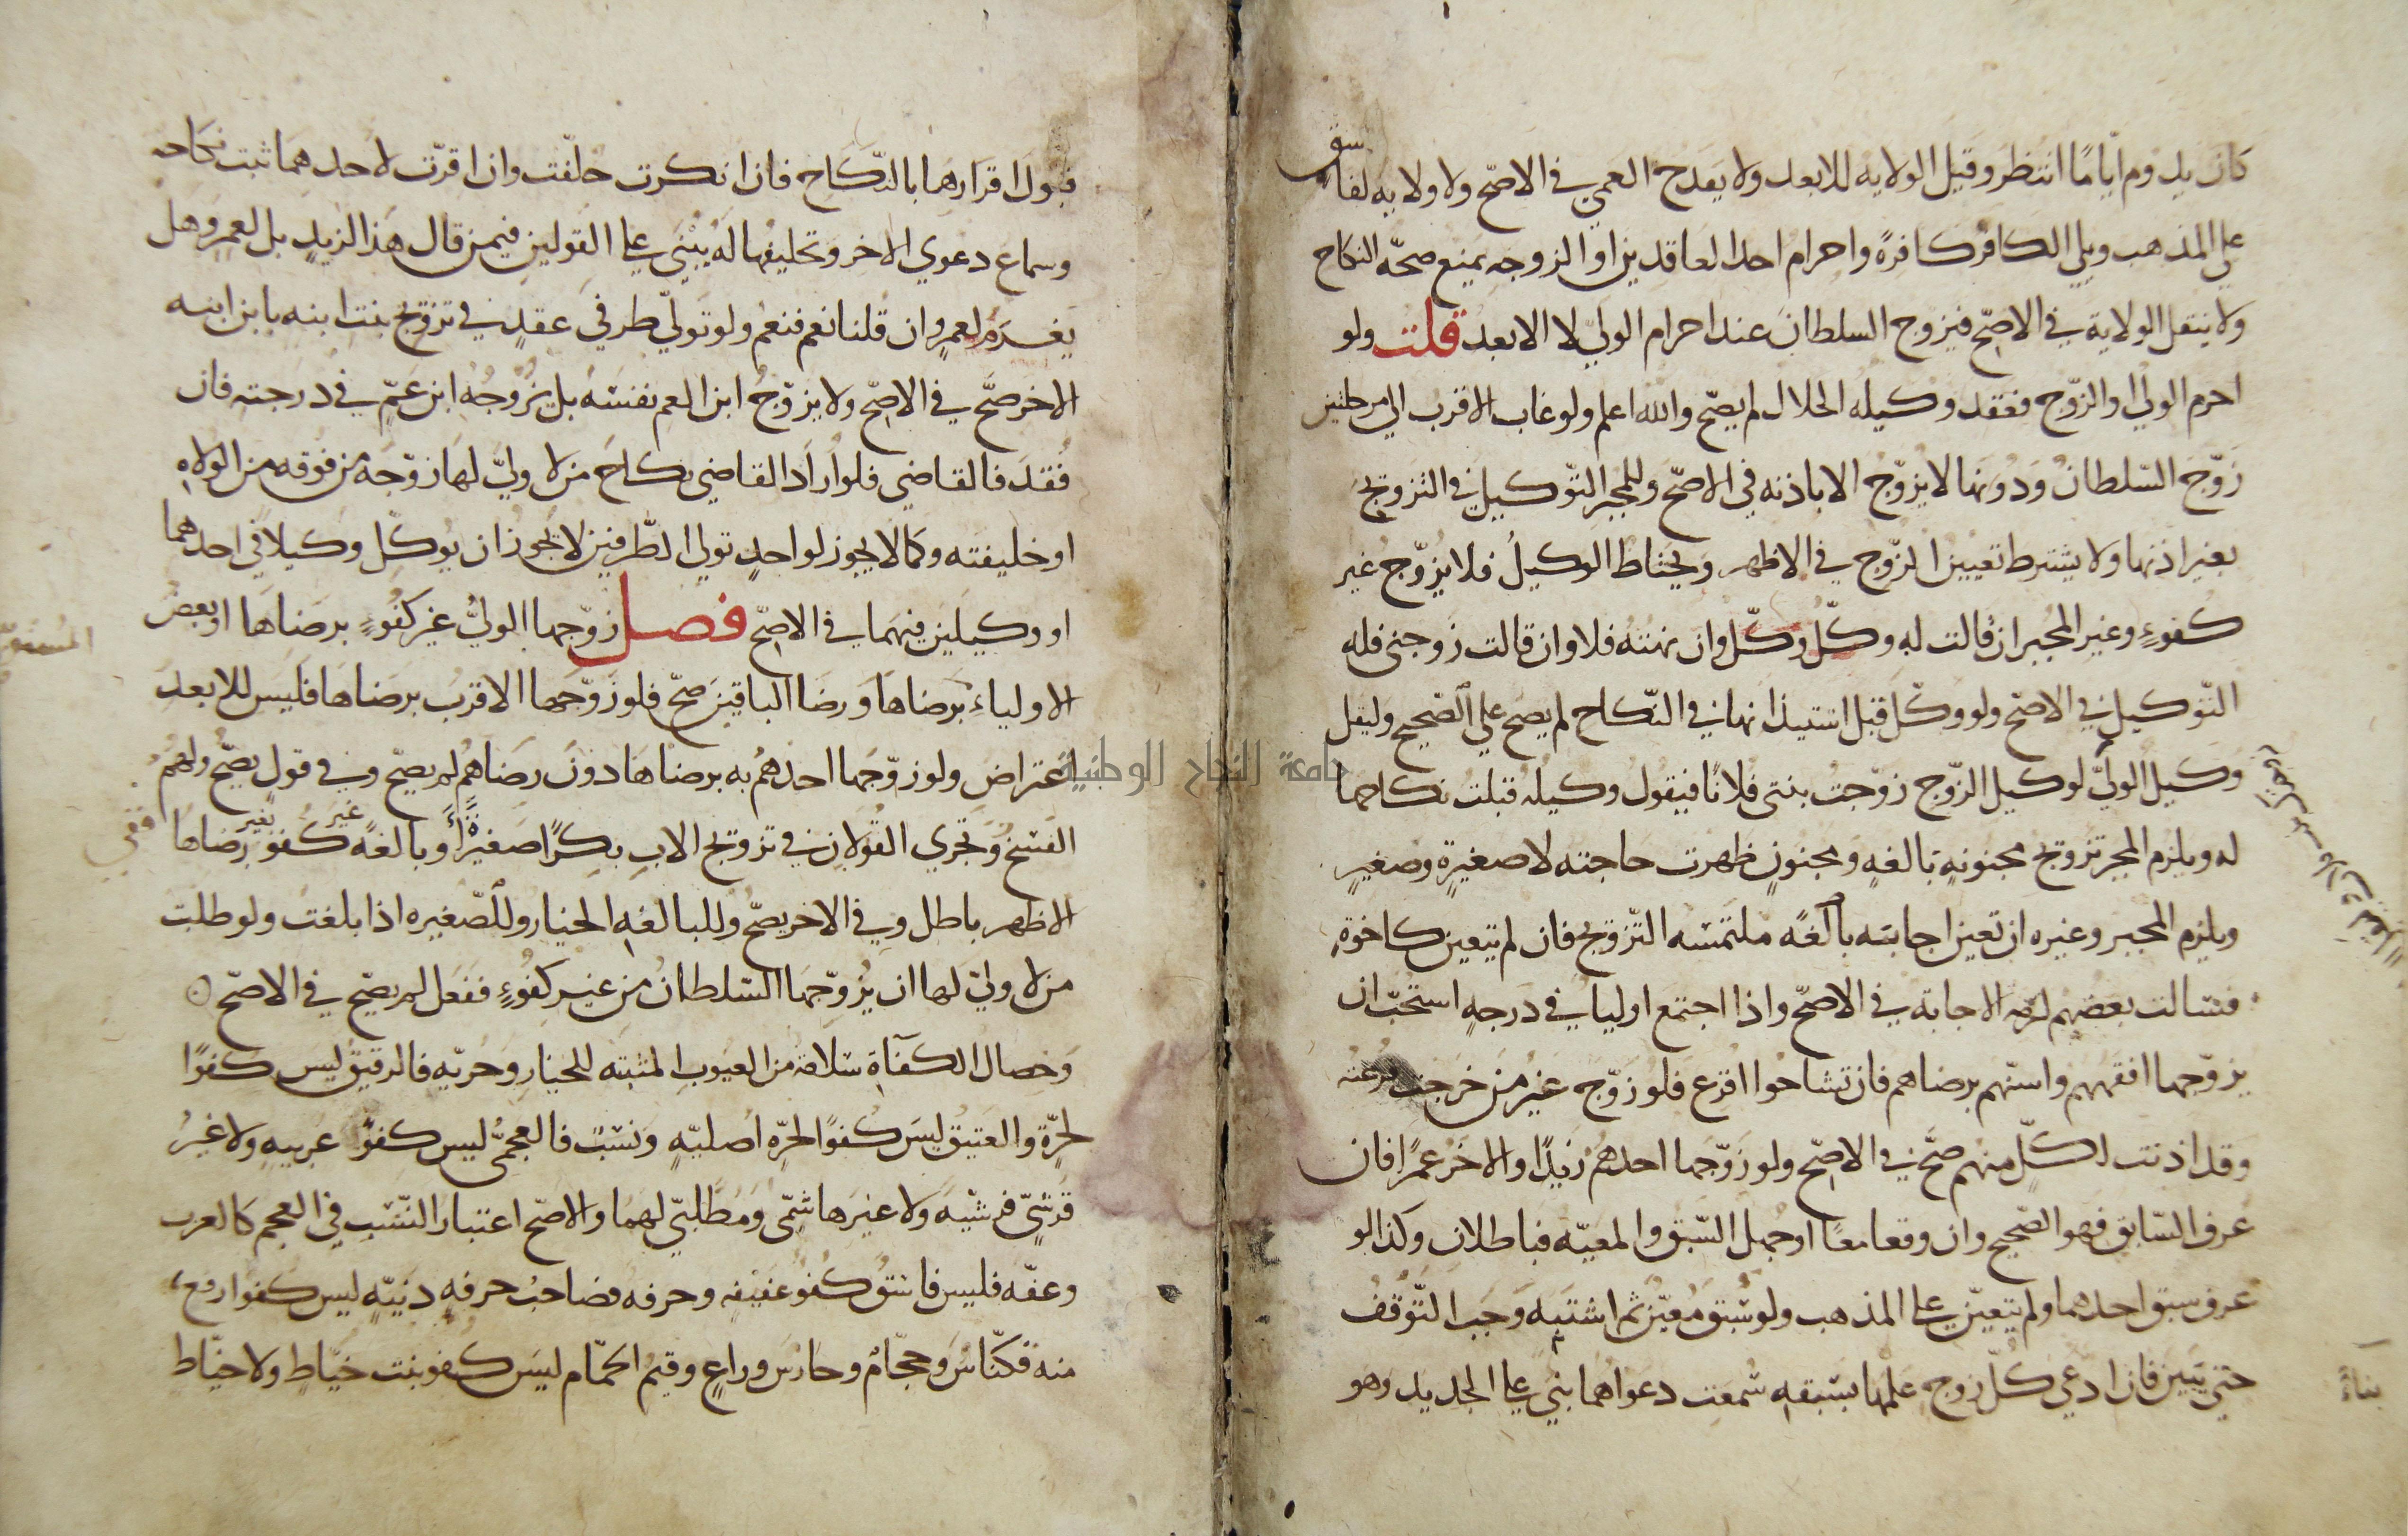 كان يدوم اياما انتظر وقيل الولايه للابعد ولا يقدح العمي في الاصح ولا ولايه لفاسق
علي المذهب ويلي الكافر كافرة واحرام احد العاقدين او الزوجه يمنع صحه النكاح
ولا ينتقل الولاية في الاصح فيزوج السلطان عند احرام الولي لا الابعد قلت ولو
احرم الولي او الزوج فعقد وكيله الحلال لم يصح والله اعلم ولو غاب الاقرب الي مرحلتين
زوج السلطان ودونها لا يزوج الا باذنه في الاصح وللمجبر التوكيل في التزويج
بغير اذنها ولا يشترط تعيين الزوج في الاظهر ويحتاط الوكيل فلا يزوج غير
كفوء وغير المجبر ان قالت له وكل وكل وان نهته فلا وان قالت زوجني فله
التوكيل في الاصح ولو وكل قبل استيذانها في النكاح لم يصح علي الصحيح وليقل
وكيل الولي لوكيل الزوج زوجت بنتي فلانا فيقول وكيله قبلت نكاحها
له ويلزم المجبر تزويج مجنونه بالغه ومجنون ظهرت حاجته لا صغيرة وصغير
ويلزم المجبر وغيره ان تعين اجابته بالغه ملتمسه التزويج فان لم يتعين كاخوة
فسالت بعضهم لزمه الاجابة في الاصح واذا اجتمع اوليا في درجه استحب ان
يزوجها افقههم واسنهم برضاهم فان تشاحوا اقرع فلو زوج غير من خرجت قرعته
وقد اذنت لكل منهم صح في الاصح ولو زوجها احدهم زيدا والاخر عمرا فان
عرف السابق فهو الصحيح وان وقعا معا او جهل السبق والمعيه فباطلان وكذا لو
عرف سبق احدهما ولم يتعين علي المذهب ولو سبق معين ثم اشتبه وجب التوقف
حتي يتبين فان ادعي كل زوج علمها بسبقه سمعت دعواهما بني علي الجديد وهو
بناءً
قبول اقرارها بالنكاح فان انكرت حلفت وان اقرت لاحدهما ثبت نكاحه
وسماع دعوي الاخر وتحليفها له يبني علي القولين فيمن قال هذا لزيد بل لعمرو هل
يغرم لعمرو ان قلنا نعم فنعم ولو تولي طرفي عقد في تزويج بنت ابنه بابن ابنه
الاخر صح في الاصح ولا يزوج ابن العم نفسه بل يزوجه ابن عم في درجته فان
فقد فالقاضي فلو اراد القاضي نكاح من لا ولي لها زوجه من فوقه من الولاه
او خليفته وكما لا يجوز لواحد تولي الطرفين لا يجوز ان يوكل وكيلا في احدهما
او وكيلين فيهما في الاصح فصل زوجها الولي غير كفوء برضاها او بعض
الاولياء برضاها ورضا الباقين صح فلو زوجها الاقرب برضاها فليس للابعد
اعتراض ولو زوجها احدهم به برضاها دون رضاهم لم يصح وفي قول يصح ولهم
الفسخ وتجري القولان في تزويج الاب بكرا صغيرة او بالغه غير كفو بغير رضاها ففي
الاظهر باطل وفي الاخر يصح وللبالغه الخيار وللصغيره اذا بلغت ولو طلبت
من لا ولي لها ان يزوجها السلطان من غير كفوء ففعل لم يصح في الاصح
وخصال الكفآة سلامة من العيوب المثبته للخيار وحريه فالرقيق ليس كفوا
لحرة والعتيق ليس كفوا لحره اصليه ونسب فالعجمي ليس كفو عربيه ولا غير
قرشي قرشيه ولا غير هاشمي ومطلبي لهما والاصح اعتبار النسب في العجم كالعرب
وعفه فليس فاسق كفو عفيفه وحرفه فصاحب حرفه دنيه ليس كفو ارفع
منه فكناس وحجام وحارس وراع وقيم الحمام ليس كفو بنت خياط ولا خياط
جامعة النجاح الوطنية